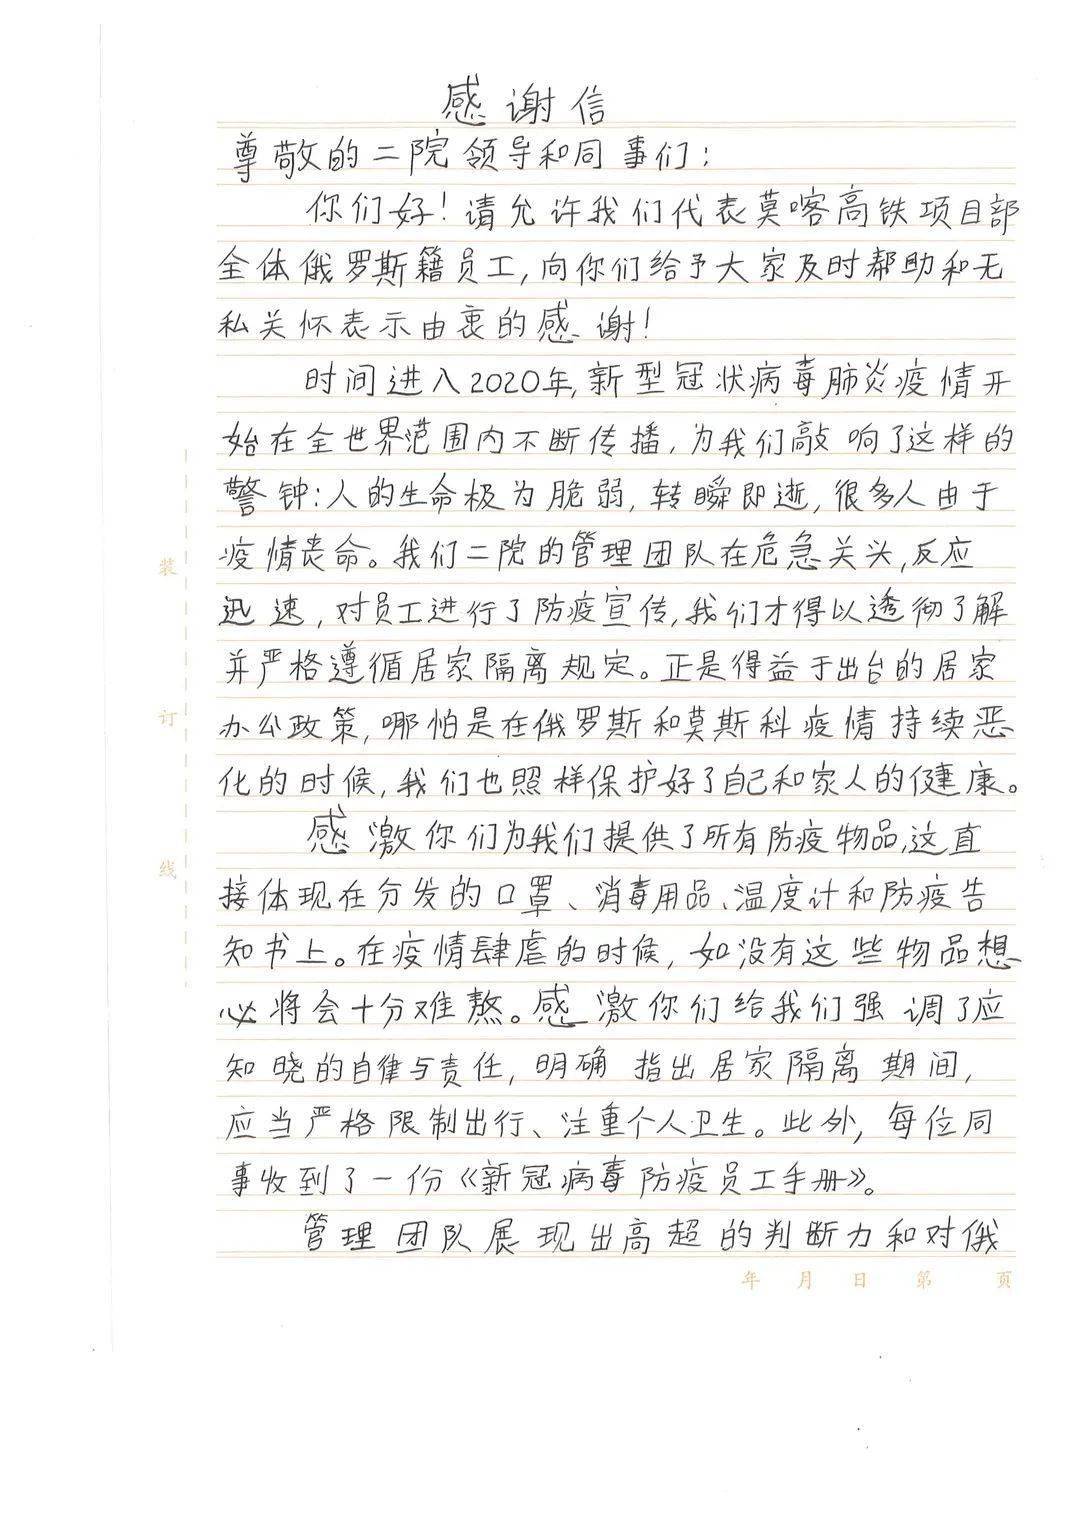 感谢信
尊敬的二院领导和同事们：
你们好！请允许我们代表莫喀高铁项目部
全体俄罗斯籍员工，向你们给予大家及时帮助和无
私关怀表示由衷的感谢！
时间进入2020年，新型冠状病毒肺炎疫情开
始在全世界范围内不断传播，为我们敲响了这样的
警钟：人的生命极为脆弱，转瞬即逝，很多人由于
疫情丧命。我们二院的管理团队在危急关头，反应
迅速，对员工进行了防疫宣传，我们才得以透彻了解
并严格遵循居家隔离规定。正是得益于出台的居家
办公政策，哪怕是在俄罗斯和莫斯科疫情持续恶
化的时候，我们也照样保护好了自己和家人的健康。
感激你们为我们提供了所有防疫物品，这直
接体现在分发的口罩、消毒用品、温度计和防疫告
知书上。在疫情肆虐的时候，如没有这些物品想
必将会十分难熬。感激你们给我们强调了应
知晓的自律与责任，明确指出居家隔离期间，
应当严格限制出行、注重个人卫生。此外，每位同
事收到了一份《新冠病毒防疫员工手册》。
管理团队展现出高超的判断力和对俄
装
订
线
年 月 日 第 页